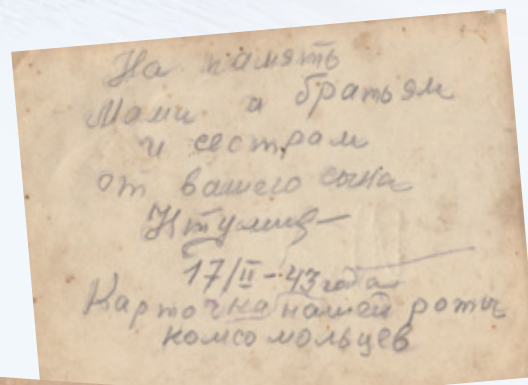 На память
Мами и братьям
и сестрам
от вашего сына
17/II-43 года
Карточка нашей роты
комсомольцев